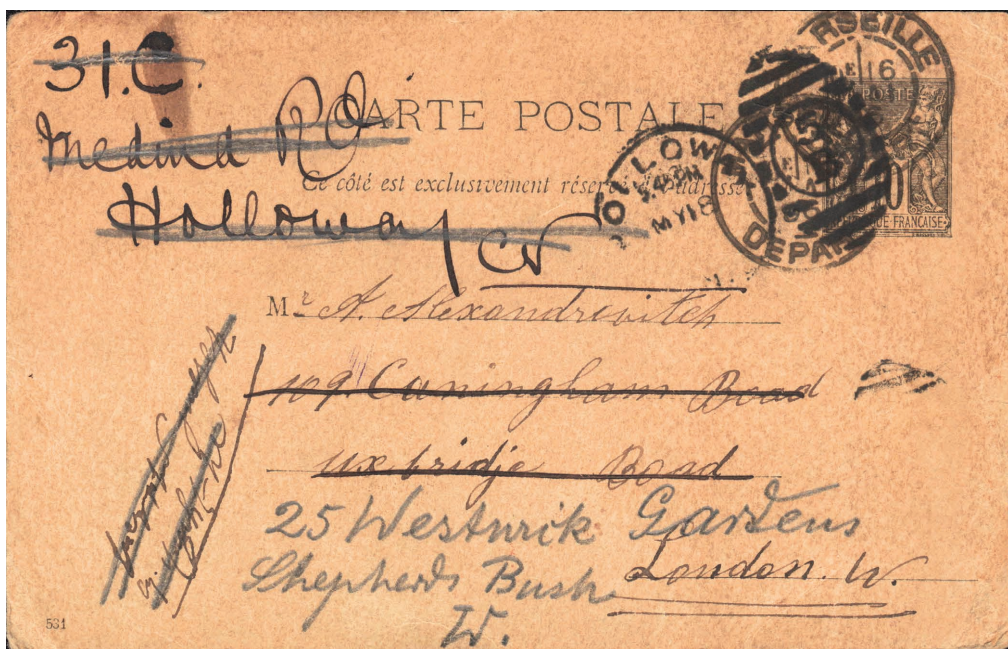 31.C.
Medina Rd
Holloway
CARTE POSTALE
Ce côté est exclusivement réservé à l'adresse
RSEILLE
E 16
POSTE
HOLLOWAY
MY 18
DEPART
10
QUE FRANÇAISE
Mr A. Alexandrovitch
109 Caningham Boad
uxbridje Boad
25 Westwik Gardens
Shepherds Bush
London. W.
W.
531